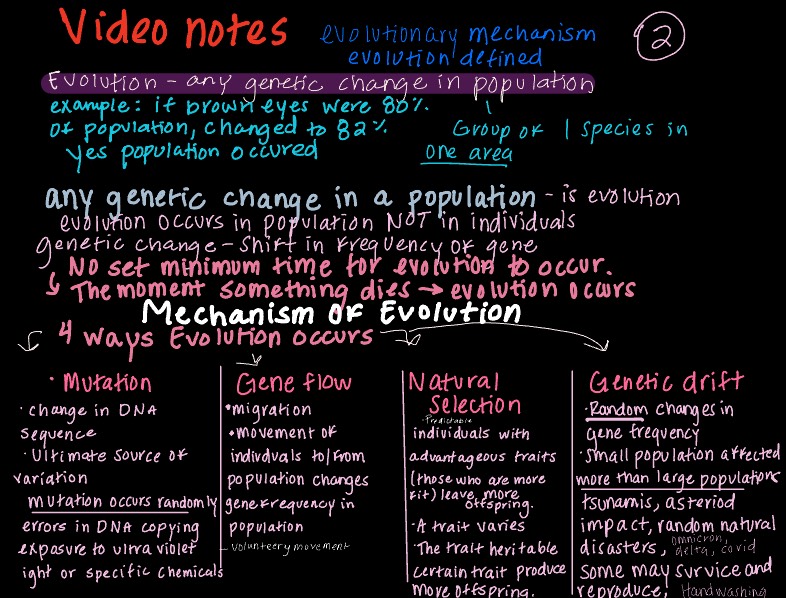 Video notes
evolutionary mechanism
evolution defined
2
Evolution - any genetic change in population
example: if brown eyes were 80%.
of population, changed to 82%
yes population occured
Group of 1 species in
one area
any genetic change in a population - is evolution
evolution occurs in population NOT in individuals
genetic change - shift in frequency of gene
No set minimum time for evolution to occur.
The moment something dies → evolution occurs
Mechanism of Evolution
4 ways Evolution occurs
· Mutation
· change in DNA
sequence
· Ultimate source of
variation
mutation occurs randomly
errors in DNA copying
exposure to ultra violet
ight or specific chemicals
Gene flow
• migration
• movement of
indivduals to/from
population changes
gene frequency in
population
- volunteery movement
Natural
Selection
- Predictable
individuals with
advantageous traits
(those who are more
fit) leave more
offspring.
· A trait varies
· The trait heritable
certain trait produce
more offspring.
Genetic drift
· Random changes in
gene frequency
· small population affected
more than large populations
tsunamis, asteriod
impact, random natural
disasters, omnicron,
delta, covid
some may survice and
reproduce, Handwashing